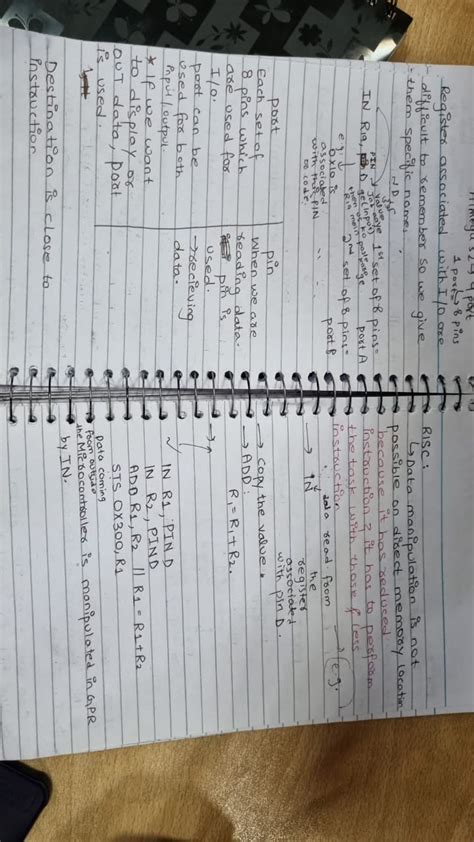 Atmega 32 → 4 port
1 port → 8 pins
Register associated with I/O are
difficult to remember so we give
them specific name.
IN R10, D
1st set of 8 pins =
port A
2nd set of 8 pins =
port B
e.g.
0x10 is
associated
with that PIN
port
Each set of
8 pins which
are used for
I/O.
port can be
used for both
input/output.
* If we want
to display or
OUT data, port
is used.
pin
When we are
reading data.
pin is
used.
→ recieving
data.
Destination is close to
instruction
RISC:
↳ Data manipulation is not
possible on direct memory location
because it has reduced
instruction & it has to perform
the task with those & less
instruction.
→ e.g.
data read from
→ IN
the
register
associated
with PIN D.
→ copy the value.
→ ADD:
R1 = R1 + R2.
→
✓ IN R1, PIND
IN R2, PIND
ADD R1, R2 || R1 = R1 + R2
STS 0X300, R1
Data coming
from outside
the Microcontroller is manipulated in GPR
by IN.